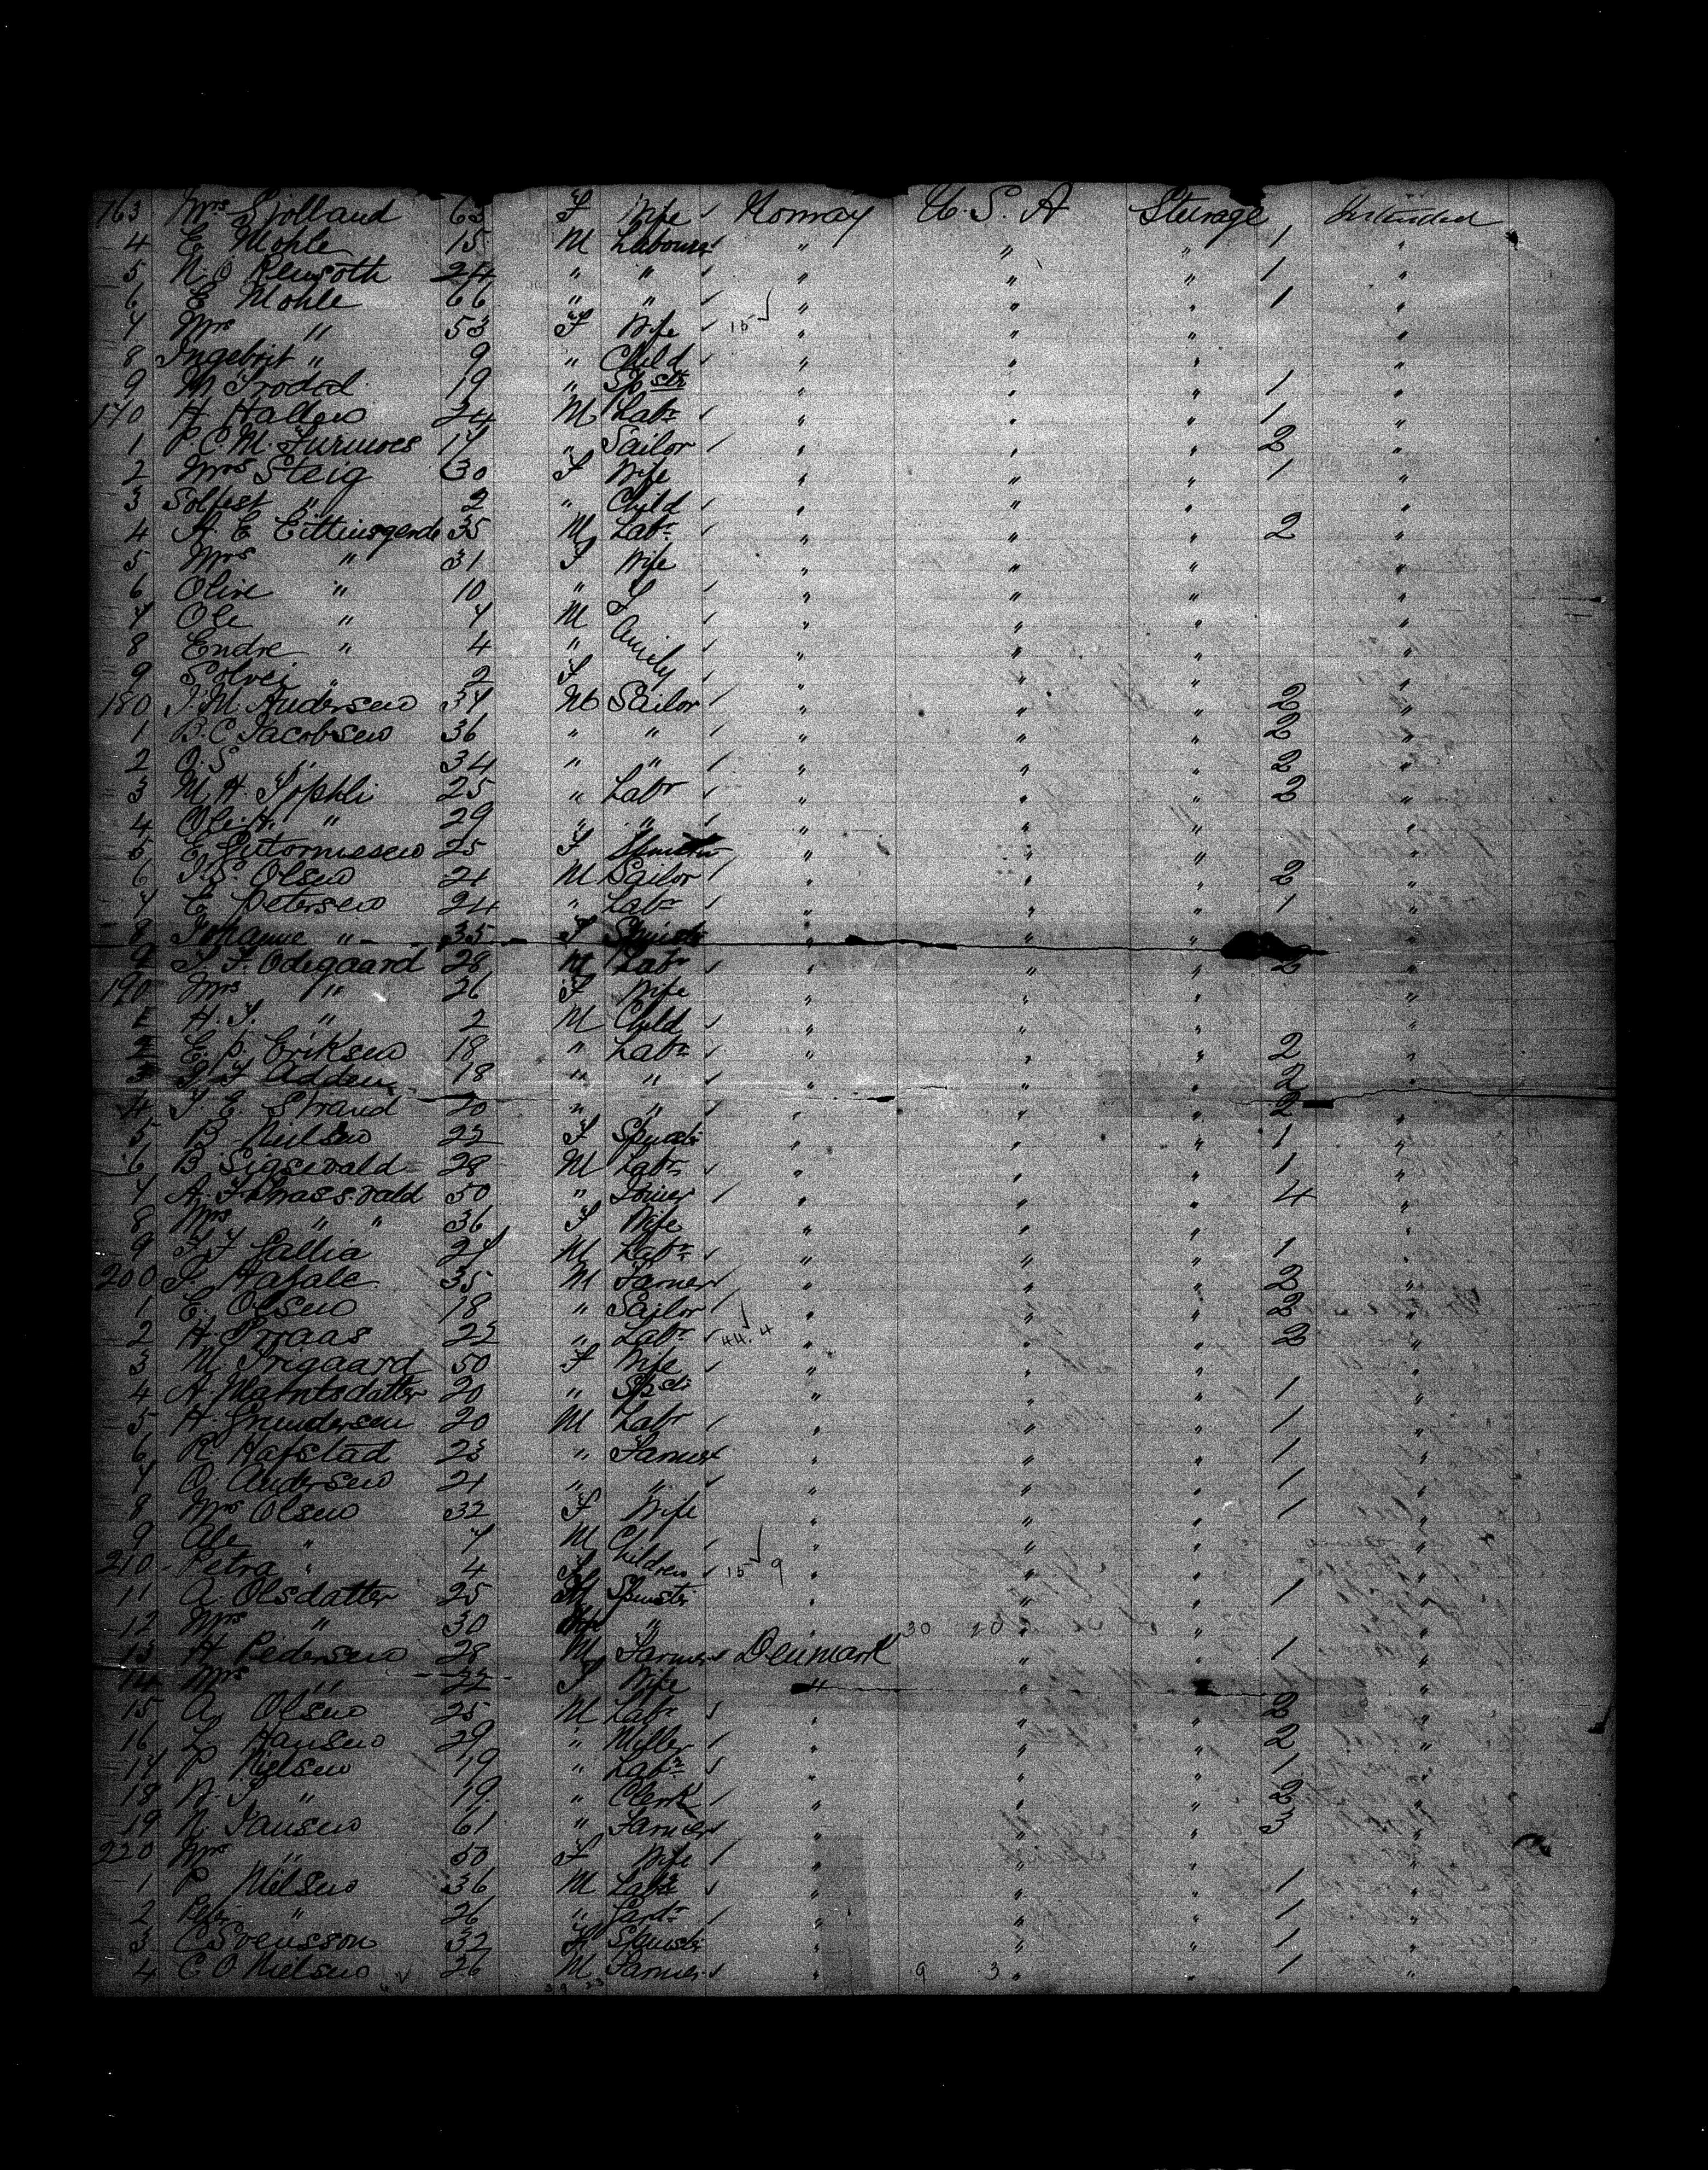 163 Mrs Sjolland 63 F Wife Norway U.S.A Sturage
4 E Mohle 15 M Labourer " " " 1 "
5 N O 24 " " " " " 1 "
6 E Mohle 66 " " " " " 1 "
7 Mrs " 53 F Wife 15 " " " "
8 Ingebrit " 9 " Child " " " "
9 M 19 " Spstr " " " 1 "
170 H Hallen 24 M Labr " " " 1 "
1 P. C M. 17 " Sailor " " " 2 "
2 Mrs Steig 30 F Wife " " " 1 "
3 Solfest " 2 " Child " " " "
4 A E 35 M Labr " " " 2 "
5 Mrs " 31 F Wife " " " "
6 Oline " 10 " Family " " " "
7 Ole " 7 M " " " "
8 Endre " 4 " " " " "
9 Solvei " 2 F " " " "
180 J. M. Andersen 37 M Sailor " " " 2 "
1 B. C Jacobsen 36 " " " " " 2 "
2 O. S " 34 " " " " " 2 "
3 M. H. 25 " Labr " " " 2 "
4 Ole. A. " 29 " " " " " "
5 E 25 F " " " "
6 J. S. Olsen 21 M Sailor " " " 2 "
7 E Petersen 24 " Labr " " " 1 "
8 Johanne " 35 F Spinstr " " " "
9 J. J. Odegaard 28 M Labr " " " 2 "
190 Mrs " 26 F Wife " " " "
1 H. J. " 2 M Child " " " "
2 E. P. Eriksen 18 " Labr " " " 2 "
3 18 " " " " " 2 "
4 J. E. Strand 20 " " " " " 2 "
5 B. Nielsen 22 F Spinstr " " " 1 "
6 B. Sigsevald 28 M Labr " " " 1 "
7 A. 50 " Joiner " " " 4 "
8 Mrs " " 36 F Wife " " " "
9 27 M Labr " " " 1 "
200 35 M Farmer " " " 2 "
1 E. Olsen 18 " Sailor " " " 2 "
2 H 22 " Labr 44.4 " " " 2 "
3 M Trigaard 50 F Wife " " " "
4 A. 20 " Spstr " " " 1 "
5 H. Gundersen 20 M Labr " " " 1 "
6 R Hafstad 23 " Farmer " " " 1 "
7 O. Andersen 21 " " " " " 1 "
8 Mrs Olsen 32 F Wife " " " 1 "
9 Ole " 7 M Children " " " "
210 Petra " 4 F 15 9 " " " "
11 A Olsdatter 25 Spinstr " " " 1 "
12 Mrs " 30 " " 30 20 " " "
13 H Pedersen 28 M Farmer Denmark " " 1 "
14 Mrs " 22 F Wife " " " "
15 A Olsen 25 M Labr " " " 2 "
16 L Hansen 29 " Miller " " " 2 "
17 P Nielsen 19 " Labr " " " 1 "
18 N. J " 19 " Clerk " " " 2 "
19 N Jansen 61 " Farmer " " " 3 "
220 Mrs " 50 F Wife " " " "
1 P Nielsen 36 M Labr " " " 1 "
2 Peter " 26 " Gardr " " " 1 "
3 C Svensson 32 F Spinstr " " " 1 "
4 C O Nielsen 26 M Farmer " 9 3 " " 1 "